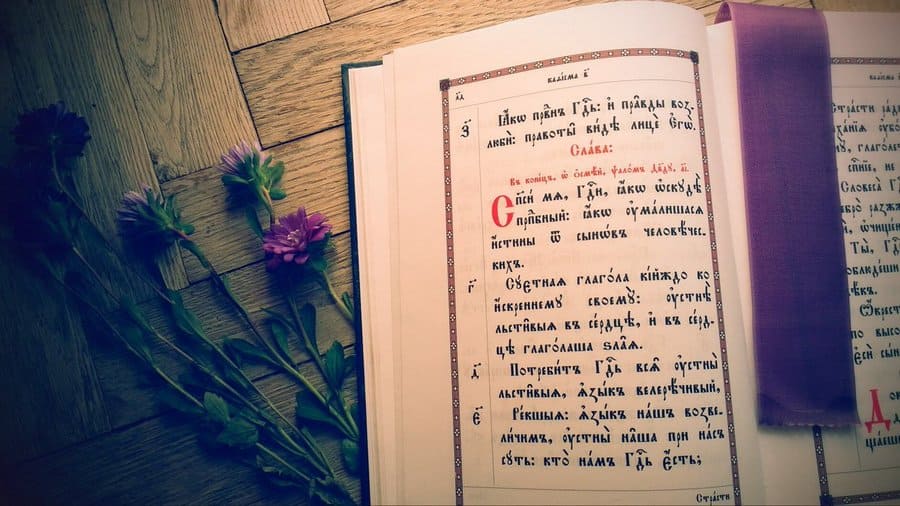 каѳі́сма в҃
з҃ Ꙗ҆́кѡ првⷣнъ гдⷭ҇ь: и҆ пра̑вды воз-
любѝ: правоты̑ ви́дѣ лицѐ є҆гѡ̀.
Сла́ва:
Въ коне́цъ, ѡ҆ ѻ҆смѣ́й, ѱало́мъ дв҃дꙋ, а҃і.
Сп҃си́ мѧ, гдⷭ҇и, ꙗ҆́кѡ ѡ҆скꙋдѣ̀
прпⷣбный: ꙗ҆́кѡ ᲂу҆ма́лишасѧ
и҆́стины ѿ сынѡ́въ человѣ́чес-
кихъ.
г҃ Сꙋ́етнаѧ глаго́ла кі́йждо ко
и҆́скреннемꙋ своемꙋ̀: ᲂу҆стнѣ̀
льсти̑выѧ въ се́рдцѣ, и҆ въ се́рд-
цѣ глаго́лаша ѕла̑ѧ.
д҃ Потреби́тъ гдⷭ҇ь всѧ̑ ᲂу҆стны̑
льсти̑выѧ, ѧ҆зы́къ велерѣ́чивый,
є҃ Ре́кшыѧ: ѧ҆зы́къ на́шъ возве-
ли́чимъ, ᲂу҆стны̑ на́шѧ при на́съ
сꙋ́ть: кто̀ на́мъ гдⷭ҇ь є҆́сть;
Стра́сти
каѳі́сма
Стра́сти ра́ди
Словеса̀
Ты̀, гдⷭ҇